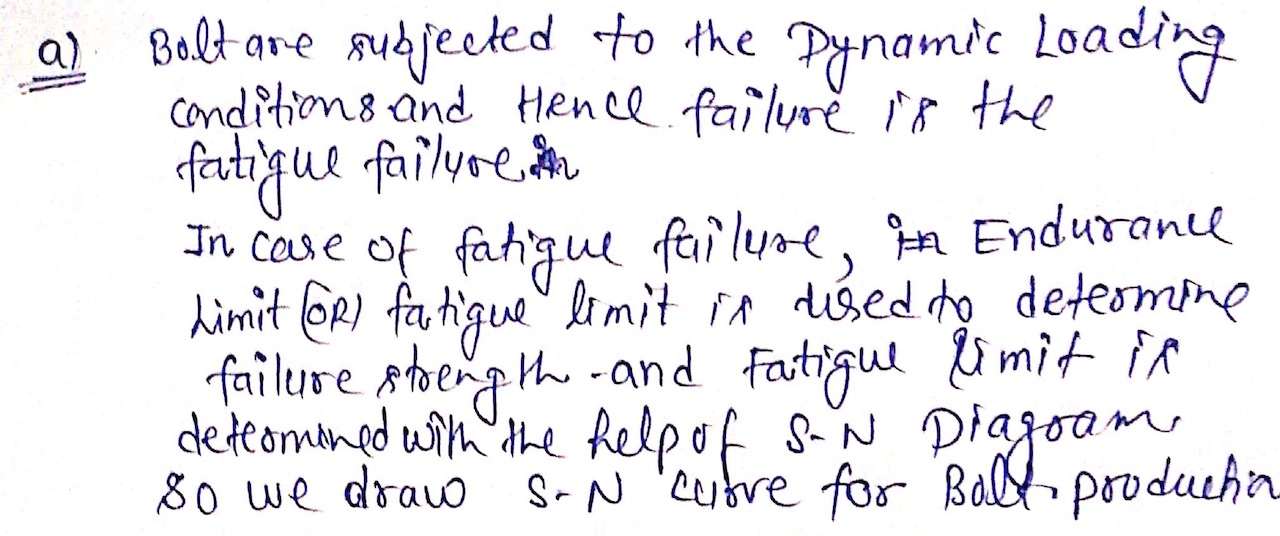 a) Bolt are subjected to the Dynamic Loading
conditions and Hence failure is the
fatigue failure.
In case of fatigue failure, in Endurance
Limit (OR) fatigue limit is used to determine
failure strength and Fatigue limit is
determined with the help of S-N Diagram.
So we draw S-N curve for Bolt production